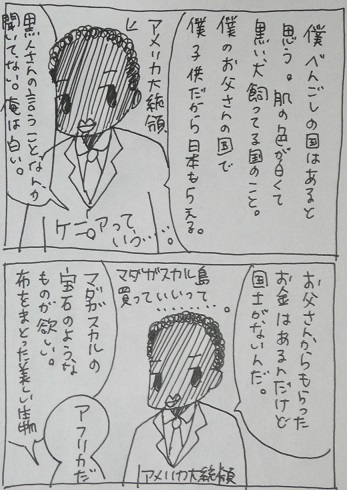 僕べんごしの国はあると
思う。肌の色が白くて
黒い犬飼ってる国のこと。
僕のお父さんの国で
僕子供だから日本もらえる。
アメリカ大統領
黒人さんの言うことなんか
聞いてない。俺は白い。
ケニアって
いう……。
お父さんからもらった
お金はあるんだけど
国土がないんだ。
マダガスカル島
買っていいって……。
マダガスカルの
宝石のような
ものが欲しい。
布をまとった美しい生物
アフリカだ
アメリカ大統領